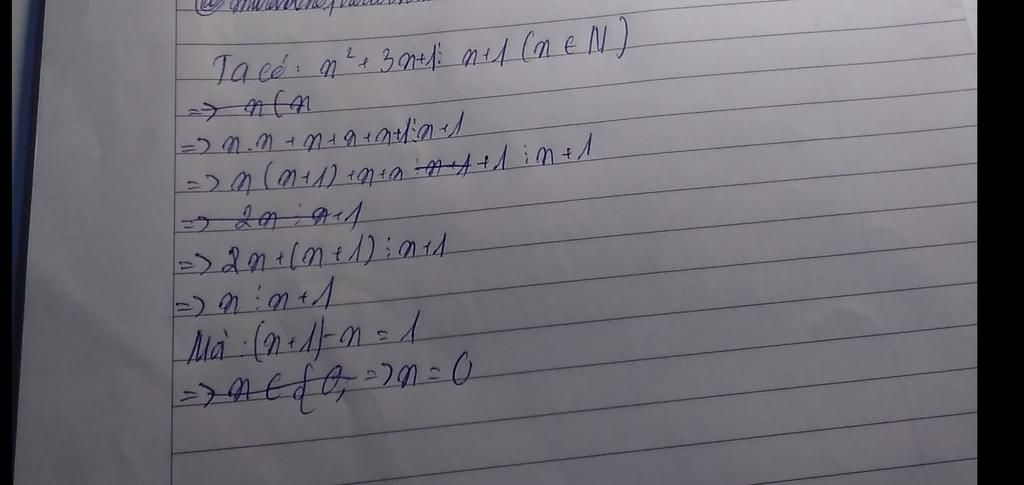 Ta có: n² + 3n+1 ⋮ n+1 (n ∈ N)
=> n(n
=> n.n + n + n + n+1 ⋮ n+1
=> n(n+1) + n+n ⋮ n+1 +1 ⋮ n+1
=> 2n ⋮ n+1
=> 2n + (n+1) ⋮ n+1
=> n ⋮ n+1
Mà: (n+1) - n = 1
=> n ∈ {0, => n = 0